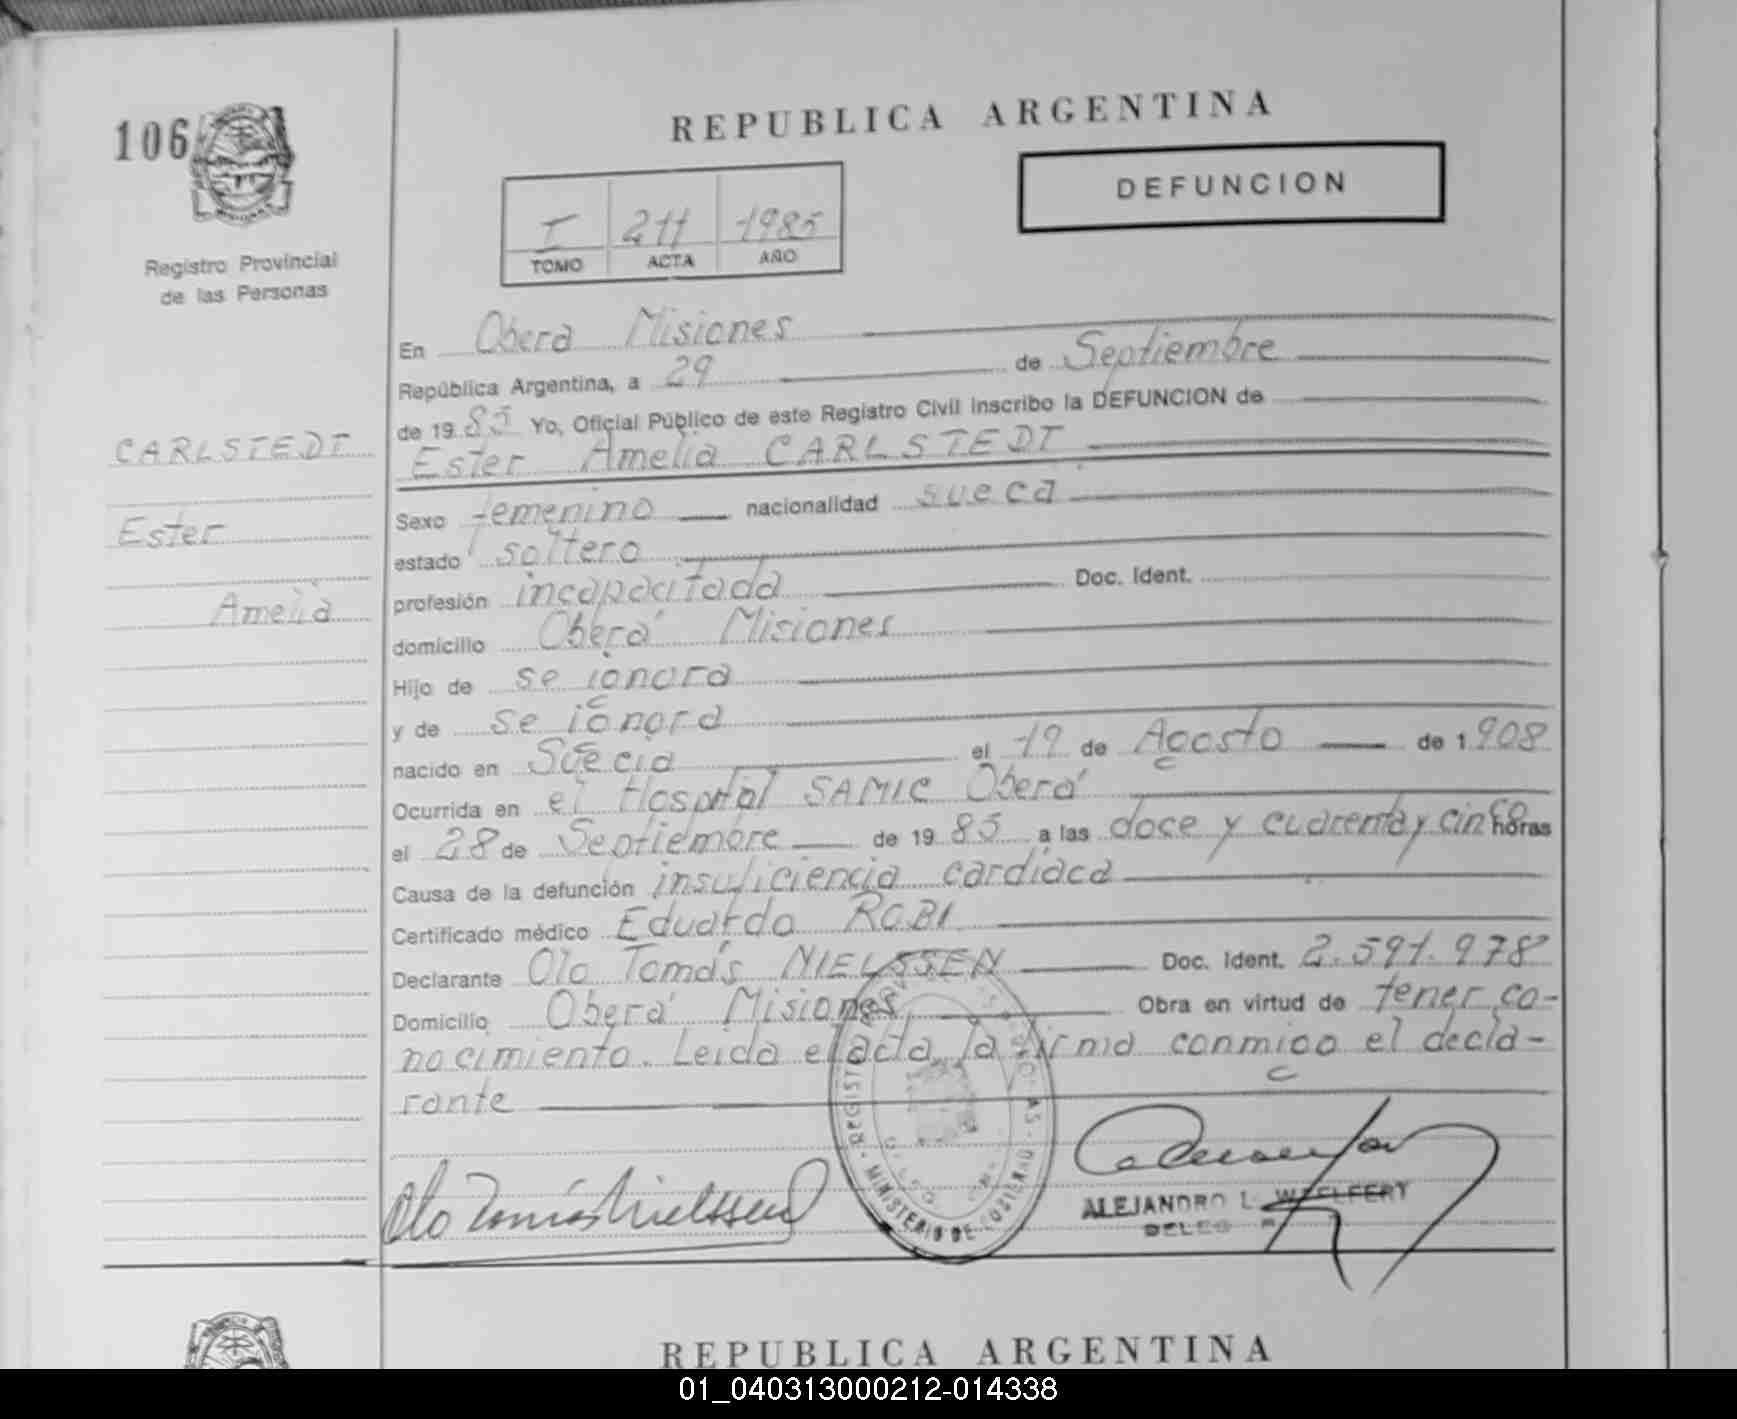 106
REPUBLICA ARGENTINA
DEFUNCION
I 211 1985
TOMO ACTA AÑO
Registro Provincial
de las Personas
En Obera Misiones
República Argentina, a 29 de Septiembre
de 1985 Yo, Oficial Público de este Registro Civil inscribo la DEFUNCION de
CARLSTEDT
Ester Amelia CARLSTEDT
Ester
Amelia
Sexo femenino nacionalidad sueca
estado soltero
profesión incapacitada Doc. Ident.
domicilio Oberá Misiones
Hijo de se ignora
y de se ignora
nacido en Suecia el 19 de Agosto de 1908
Ocurrida en el Hospital SAMIC Oberá
el 28 de Septiembre de 1985 a las doce y cuarenta y cinco horas
Causa de la defunción insuficiencia cardiaca
Certificado médico Eduardo ROBI
Declarante Olo Tomás NIELSSEN Doc. Ident. 2.591.978
Domicilio Oberá Misiones Obra en virtud de tener co-
nocimiento. Leida el acta, la firma conmigo el decla-
rante
Olo Tomás Nielssen
MINISTERIO DE
ALEJANDRO L.
REPUBLICA ARGENTINA
01_040313000212-014338